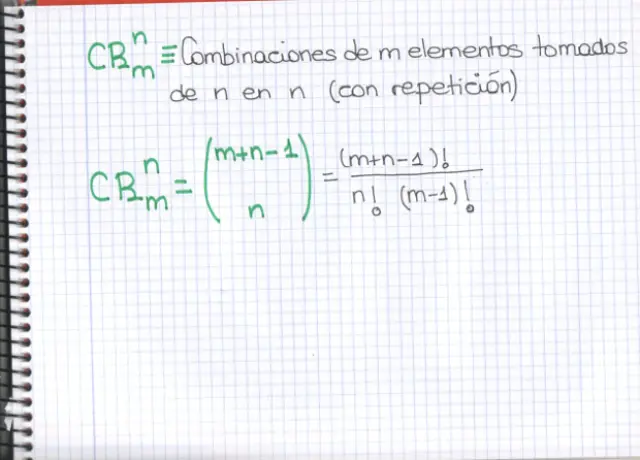 CR_m^n ≡ Combinaciones de m elementos tomados
de n en n (con repetición)
CR_m^n = (m+n-1 / n) = (m+n-1)! / n! (m-1)!